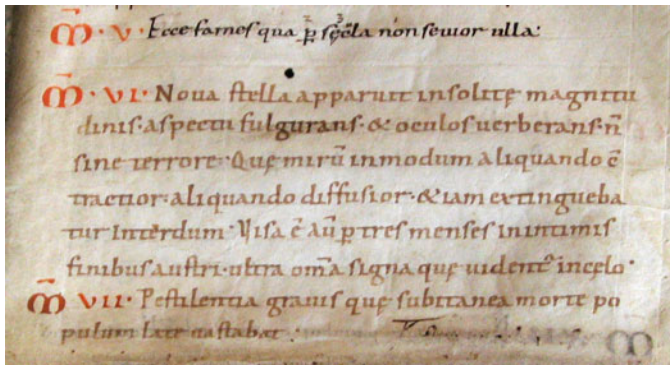 M̅·V· Ecce fames qua p̱ sęcła non sevior ulla:
M̅·VI· Nova stella apparuit insolitę magnitu
dinis·aspectu fulgurans·& oculos uerberans·n̄
sine terrore· Quę mirū inmodum aliquando ē
tractior·aliquando diffusior·&iam extingueba
tur Interdum· Visa ē aū p̱ tres menses inintimis
finibus austri·ultra om̄a signa quę uident᷒ incelo·
M̅ VII· Pestilentia grauis quę subitanea morte po
pulum late uastabat·